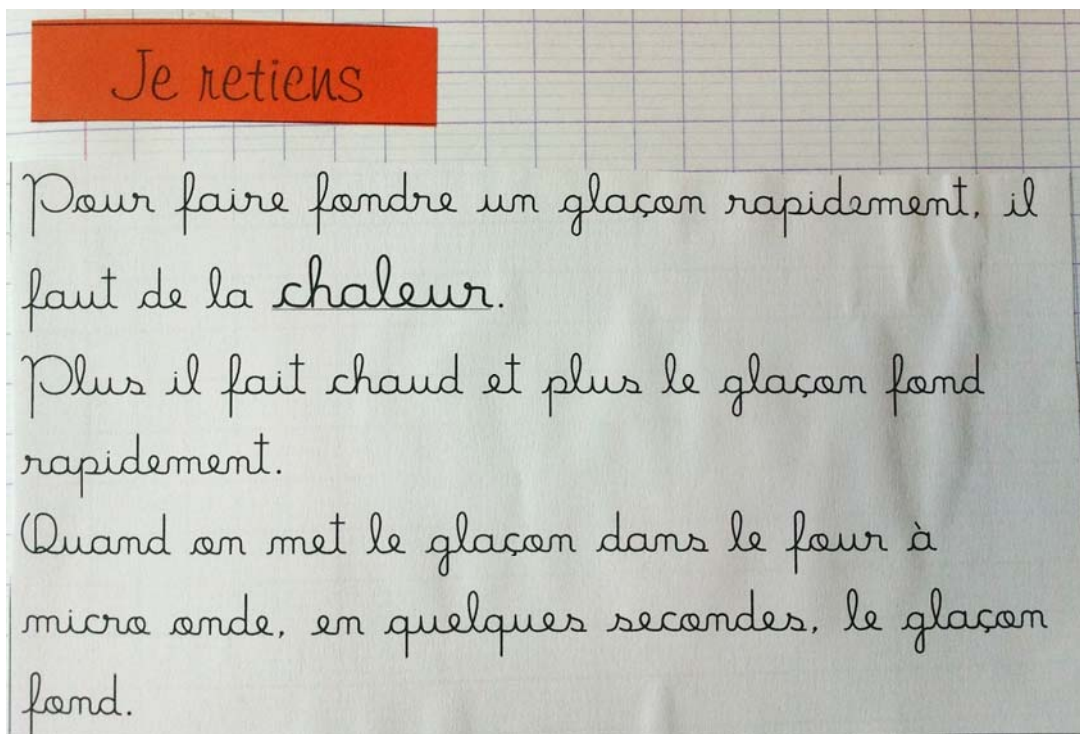 Je retiens
Pour faire fondre un glaçon rapidement, il
faut de la chaleur.
Plus il fait chaud et plus le glaçon fond
rapidement.
Quand on met le glaçon dans le four à
micro onde, en quelques secondes, le glaçon
fond.